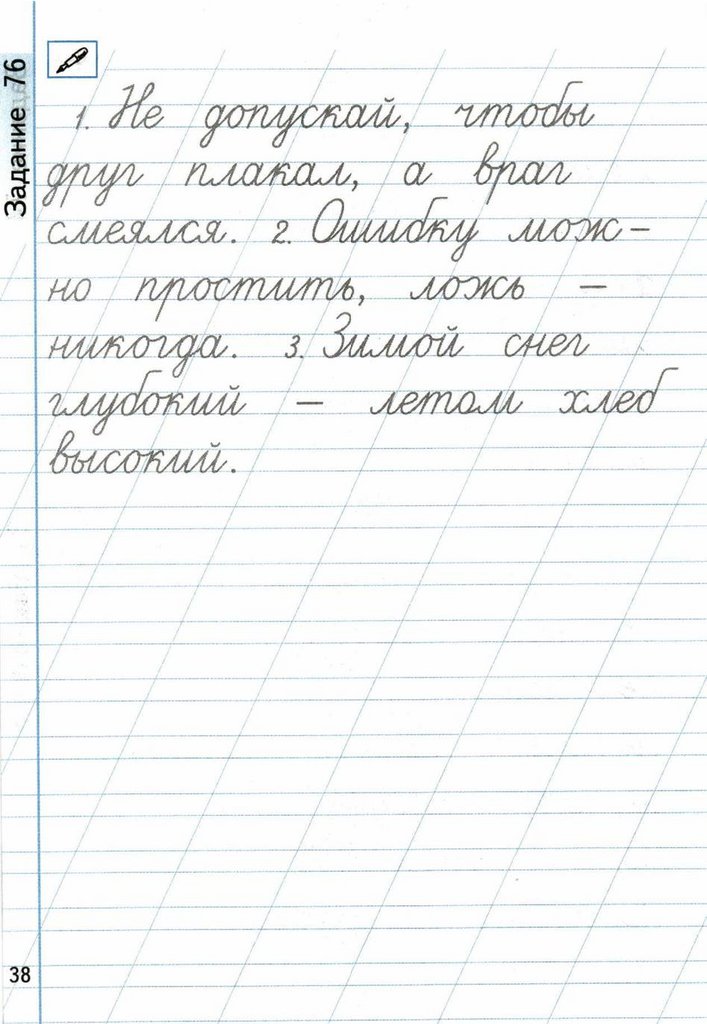 Задание 76
1. Не допускай, чтобы
друг плакал, а враг
смеялся. 2. Ошибку мож-
но простить, ложь –
никогда. 3. Зимой снег
глубокий – летом хлеб
высокий.
38